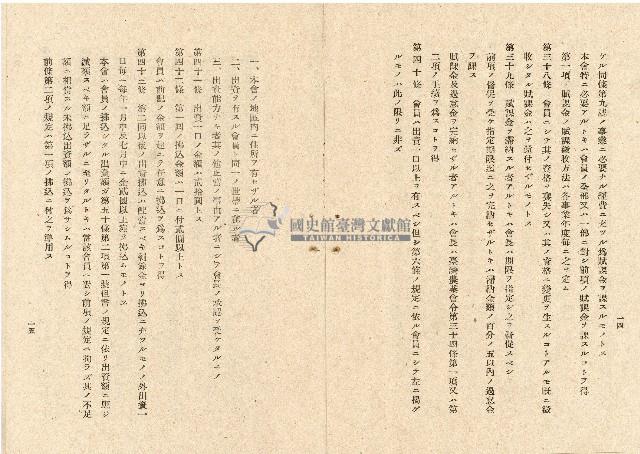 一四
ケル同條第九號ノ事業ニ必要ナル經費ニ充ツル爲賦課金ヲ課スルモノトス
本會特ニ必要アルトキハ會員ノ全部又ハ一部ニ對シ前項ノ賦課金ヲ課スルコトヲ得
第一項ノ賦課金ノ賦課徵收方法ハ各事業年度每ニ之ヲ定ム
第三十八條 會員ニシテ其ノ資格ヲ喪失シ又ハ其ノ資格ニ變更ヲ生ズルコトアルモ既ニ徵
收シタル賦課金ハ之ヲ還付セザルモノトス
第三十九條 賦課金ヲ滯納スル者アルトキハ會長ハ期限ヲ指定シ之ヲ督促スベシ
前項ノ督促ヲ受ケ指定期限迄ニ之ヲ完納セザルトキハ滯納金額ノ百分ノ五以內ノ過怠金
ヲ課ス
賦課金及過怠金ヲ完納セザル者アルトキハ會長ハ臺灣農業會令第三十四條第一項又ハ第
二項ノ手續ヲ爲スコトヲ得
第四十條 會員ハ出資一口以上ヲ有スベシ但シ第六條ノ規定ニ依ル會員ニシテ左ニ揭グ
ルモノハ此ノ限リニ非ズ
一、本會ノ地區內ニ住所ヲ有セザル者
二、出資ヲ有スル會員ト同一ノ世帶ニ在ル者
三、出資能力ナキ者其ノ他正當ノ事由アル者ニシテ會長ノ承認ヲ受ケタルモノ
第四十一條 出資一口ノ金額ハ貳拾圓トス
第四十二條 第一回ノ拂込金額ハ一口ニ付貳圓以上トス
會員ハ前記ノ金額ヲ超エテ任意ニ拂込ヲ爲スコトヲ得
第四十三條 第二回以後ノ出資拂込ハ配當スベキ剩餘金ヨリ拂込ニ充ツルモノノ外出資一
口每ニ每年一月中及七月中ニ金貳圓以上宛ヲ拂込ムモノトス
本會ハ會員ノ拂込ミタル出資額ガ第五十條第二項第一號但書ノ規定ニ依リ出資額ニ應ジ
減額スベキ額ニ足ラザルニ至リタルトキハ當該會員ニ對シ前項ノ規定ニ拘ラズ其ノ不足
額ニ相當スル未拂込出資額ノ拂込ヲ爲サシムルコトヲ得
前條第二項ノ規定ハ第一項ノ拂込ニ付之ヲ準用ス
一五
國史館臺灣文獻館
TAIWAN HISTORICA